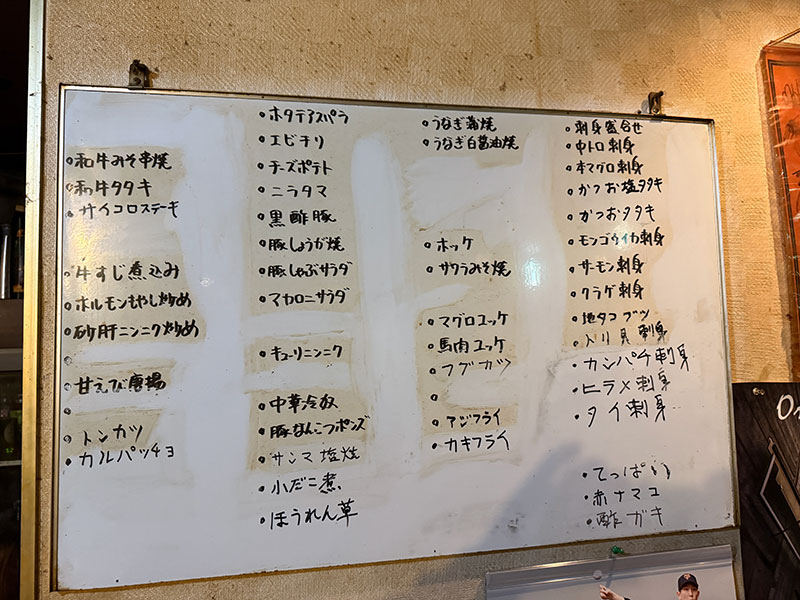 和牛みそ串焼
和牛タタキ
サイコロステーキ
牛すじ煮込み
ホルモンもやし炒め
砂肝ニンニク炒め
甘えび唐揚
トンカツ
カルパッチョ
ホタテアスパラ
エビチリ
チーズポテト
ニラタマ
黒酢豚
豚しょうが焼
豚しゃぶサラダ
マカロニサラダ
キューリニンニク
中華冷奴
豚なんこつポンズ
サンマ塩焼
小だこ煮
ほうれん草
うなぎ蒲焼
うなぎ白醤油焼
ホッケ
サワラみそ焼
マグロユッケ
馬肉ユッケ
フグカツ
アジフライ
カキフライ
刺身盛合せ
中トロ刺身
本マグロ刺身
かつお塩タタキ
かつおタタキ
モンゴウイカ刺身
サーモン刺身
クラゲ刺身
地タコブツ
トリ貝刺身
カンパチ刺身
ヒラメ刺身
タイ刺身
てっぱい
赤ナマコ
酢ガキ